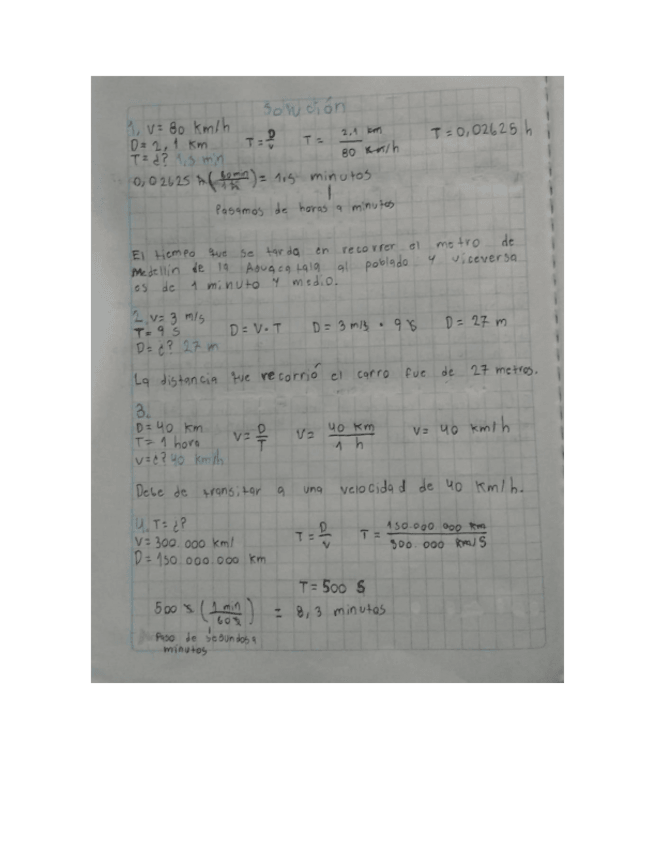 Solución
1. V= 80 km/h
D= 2,1 km
T= ¿? 1,5 min
T= D/V T= 2,1 km / 80 km/h T= 0,02625 h
0,02625 h (60 min / 1 h) = 1,5 minutos
Pasamos de horas a minutos
El tiempo que se tarda en recorrer el metro de
Medellin de la Aguacatala al poblado y viceversa
es de 1 minuto y medio.
2. V= 3 m/s
T= 9 s
D= ¿? 27 m
D= V·T D= 3 m/s · 9 s D= 27 m
La distancia que recorrió el carro fue de 27 metros.
3.
D= 40 km
T= 1 hora
V= ¿? 40 km/h
V= D/T V= 40 km / 1 h V= 40 km/h
Debe de transitar a una velocidad de 40 km/h.
4. T= ¿?
V= 300.000 km/
D= 150.000.000 km
T= D/V T= 150.000 000 km / 300.000 km/s
T= 500 s
500 s (1 min / 60 s) = 8,3 minutos
Paso de segundos a
minutos